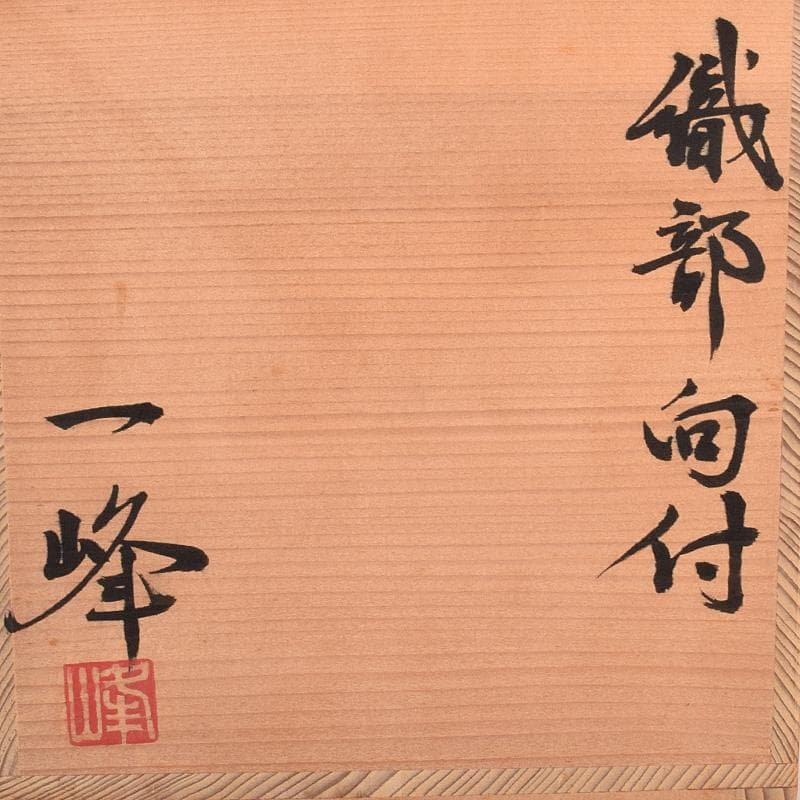 織部向付
一峰
峰